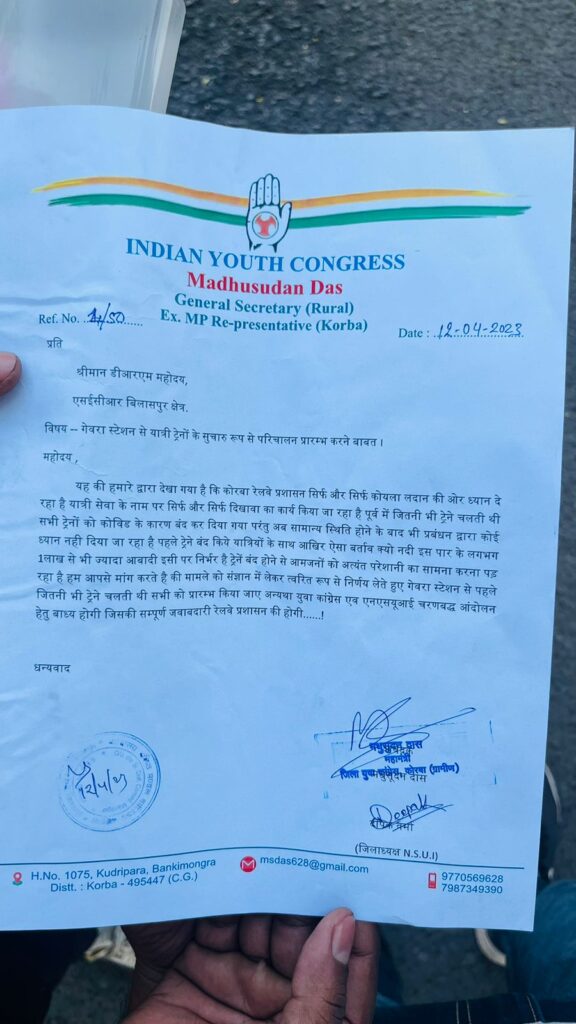 INDIAN YOUTH CONGRESS
Madhusudan Das
General Secretary (Rural)
Ex. MP Re-presentative (Korba)
Ref. No. ../50......
Date : 12-04-2023
प्रति
श्रीमान डीआरएम महोदय,
एसईसीआर बिलासपुर क्षेत्र.
विषय – गेवरा स्टेशन से यात्री ट्रेनों के सुचारु रूप से परिचालन प्रारम्भ करने बाबत ।
महोदय ,
यह की हमारे द्वारा देखा गया है कि कोरबा रेलवे प्रशासन सिर्फ और सिर्फ कोयला लदान की ओर ध्यान दे
रहा है यात्री सेवा के नाम पर सिर्फ और सिर्फ दिखावा का कार्य किया जा रहा है पूर्व में जितनी भी ट्रेने चलती थी
सभी ट्रेनों को कोविड के कारण बंद कर दिया गया परंतु अब सामान्य स्थिति होने के बाद भी प्रबंधन द्वारा कोई
ध्यान नही दिया जा रहा है पहले ट्रेने बंद किये यात्रियों के साथ आखिर ऐसा बर्ताव क्यो नदी इस पार के लगभग
1लाख से भी ज्यादा आबादी इसी पर निर्भर है ट्रेनें बंद होने से आमजनों को अत्यंत परेशानी का सामना करना पड़
रहा है हम आपसे मांग करते है की मामले को संज्ञान में लेकर त्वरित रूप से निर्णय लेते हुए गेवरा स्टेशन से पहले
जितनी भी ट्रेने चलती थी सभी को प्रारम्भ किया जाए अन्यथा युवा कांग्रेस एव एनएसयूआई चरणबद्ध आंदोलन
हेतु बाध्य होगी जिसकी सम्पूर्ण जवाबदारी रेलवे प्रशासन की होगी......!
धन्यवाद
मधुसूदन दास
महामंत्री
जिला युवा कांग्रेस, कोरबा (ग्रामीण)
Deepak
(जिलाध्यक्ष N.S.U.I)
H.No. 1075, Kudripara, Bankimongra
Distt. : Korba - 495447 (C.G.)
msdas628@gmail.com
9770569628
7987349390